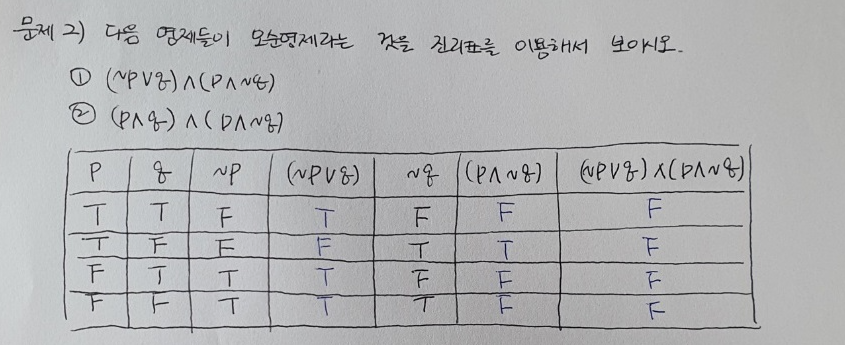 문제 2) 다음 명제들이 모순명제라는 것을 진리표를 이용해서 보이시오.
① (~p∨q)∧(p∧~q)
② (p∧q)∧(p∧~q)
P q ~P (~P∨q) ~q (p∧~q) (~P∨q)∧(p∧~q)
T T F T F F F
T F F F T T F
F T T T F F F
F F T T T F F